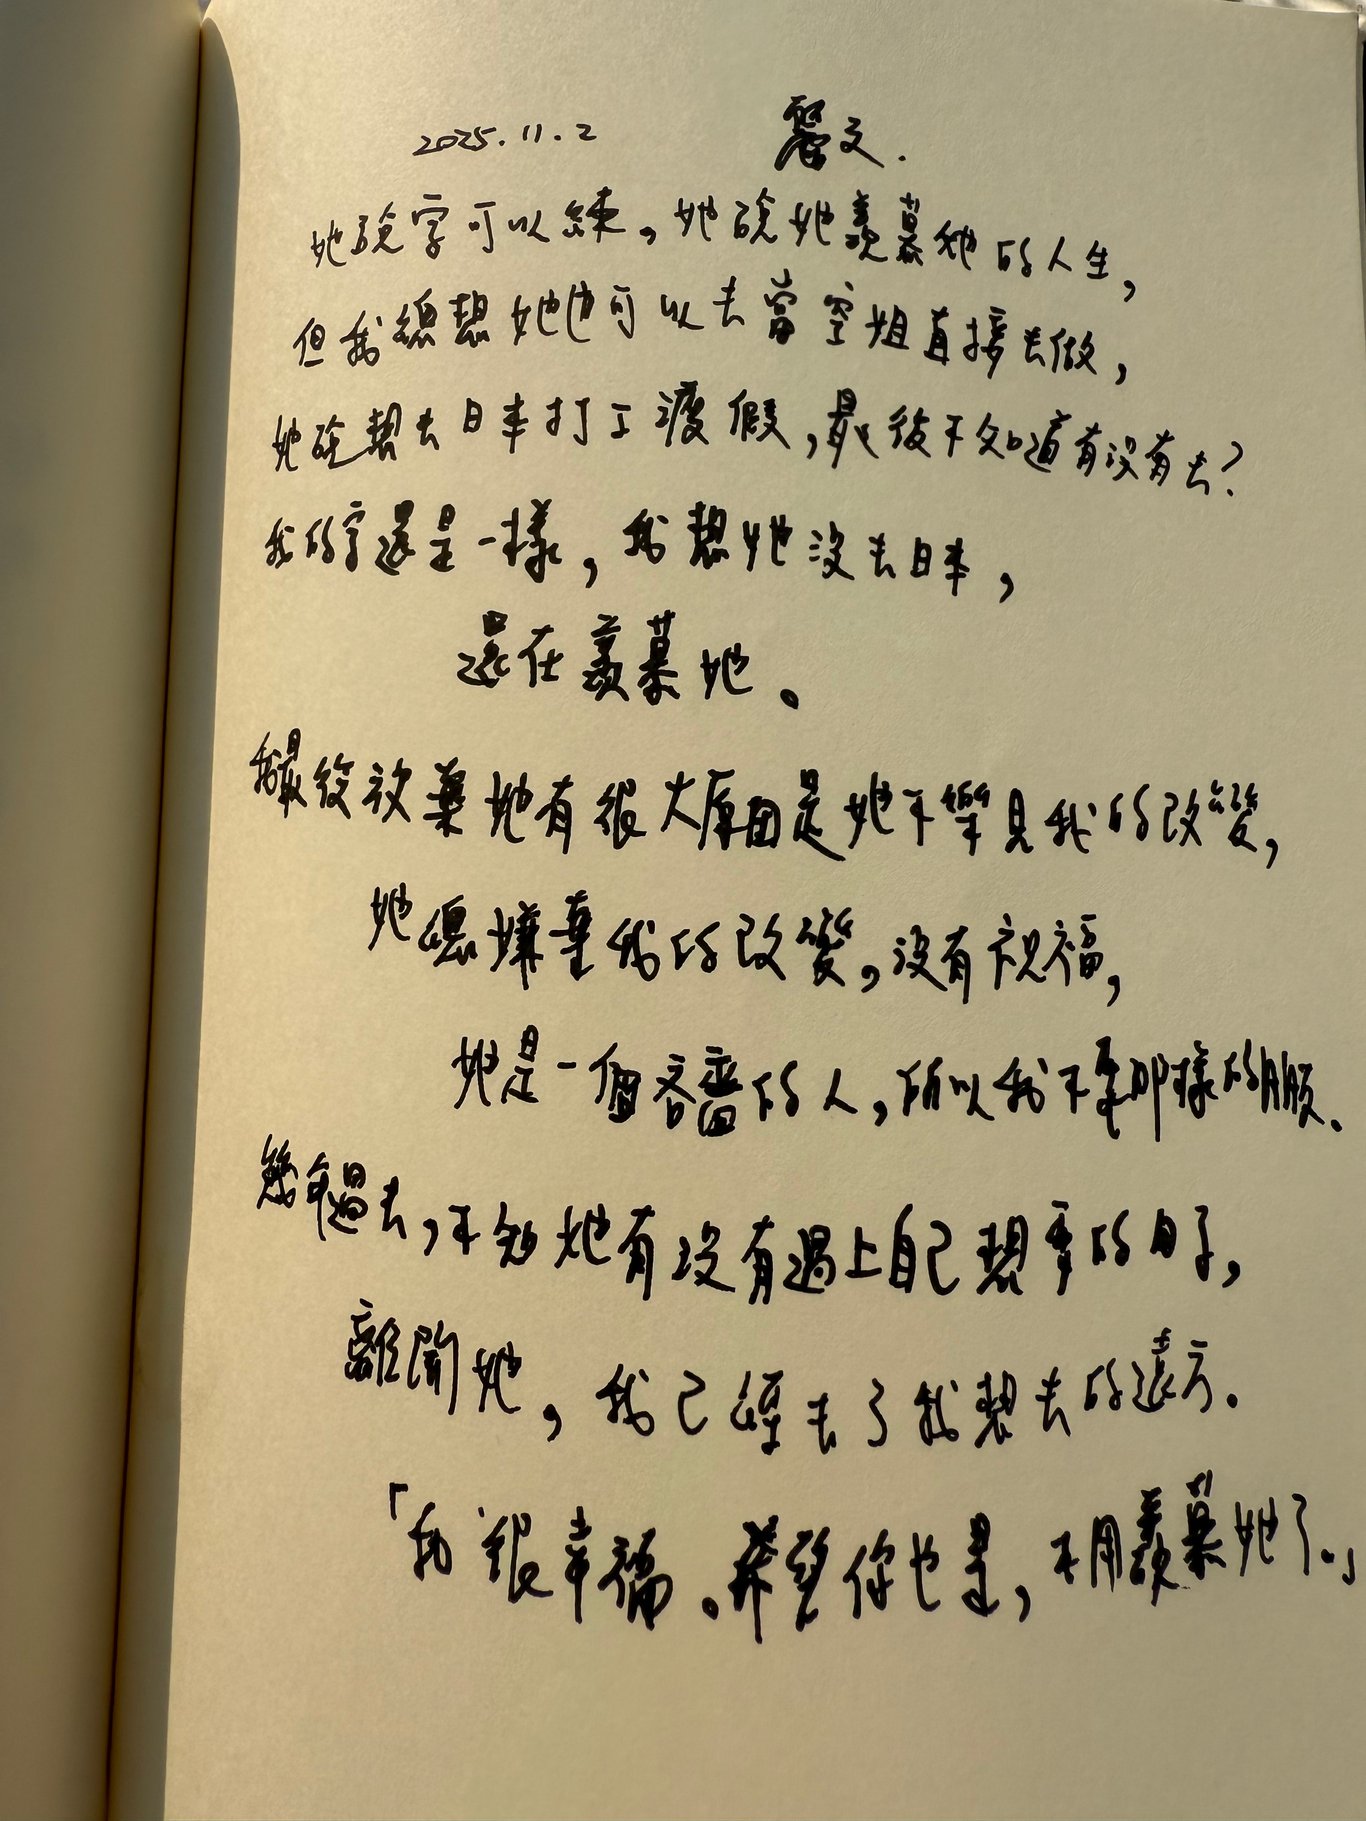 2025.11.2 麗文.
她說字可以練，她說她羨慕她的人生，
但我總想她也可以去當空姐直接去做，
她說想去日本打工渡假，最後不知道有沒有去？
我的字還是一樣，我想她沒去日本，
還在羨慕她。
我最後放棄她有很大原因是她不樂見我的改變，
她總嫌棄我的改變，沒有祝福，
她是一個吝嗇的人，所以我不要那樣的朋友.
幾年過去，不知她有沒有過上自己想要的日子，
離開她，我已經去了我想去的遠方。
「我很幸福。希望你也是，不用羨慕她了。」